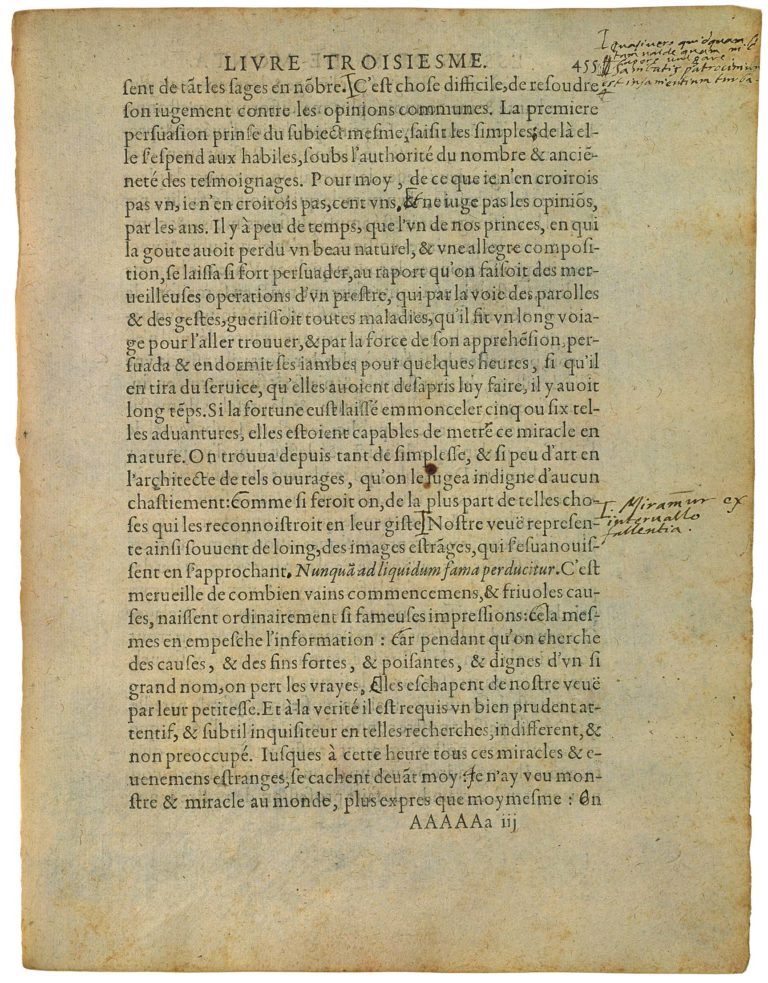 LIVRE TROISIESME.
455
ſent de tãt les ſages en nõbre. C'eſt choſe difficile, de reſoudre
ſon iugement contre les opinions communes. La premiere
perſuaſion prinſe du ſubiect meſme, ſaiſit les ſimples: de là el-
le s'eſpend aux habiles, ſoubs l'authorité du nombre & anciē-
neté des teſmoignages. Pour moy, de ce que ie n'en croirois
pas vn, ie n'en croirois pas, cent vns, Et ne iuge pas les opiniõs,
par les ans. Il y à peu de temps, que l'vn de nos princes, en qui
la goute auoit perdu vn beau naturel, & vne allegre compoſi-
tion, ſe laiſſa ſi fort perſuader, au raport qu'on faiſoit des mer-
ueilleuſes operations d'vn preſtre, qui par la voie des parolles
& des geſtes, gueriſſoit toutes maladies, qu'il fit vn long voia-
ge pour l'aller trouuer, & par la force de ſon apprehēſion, per-
ſuada & endormit ſes iambes pour quelques heures, ſi qu'il
en tira du ſeruice, qu'elles auoient deſapris luy faire, il y auoit
long tēps. Si la fortune euſt laiſſé emmonceler cinq ou ſix tel-
les aduantures, elles eſtoient capables de metre ce miracle en
nature. On trouua depuis tant de ſimpleſſe, & ſi peu d'art en
l'architecte de tels ouurages, qu'on le iugea indigne d'aucun
chaſtiement: Comme ſi feroit on, de la plus part de telles cho-
ſes qui les reconnoiſtroit en leur giſte. Noſtre veuë repreſen-
te ainſi ſouuent de loing, des images eſtrãges, qui s'eſuanouiſ-
ſent en s'approchant. Nunquã ad liquidum fama perducitur. C'eſt
merueille de combien vains commencemens, & friuoles cau-
ſes, naiſſent ordinairement ſi fameuſes impreſſions: Cela meſ-
mes en empeſche l'information : Car pendant qu'on cherche
des cauſes, & des fins fortes, & poiſantes, & dignes d'vn ſi
grand nom, on pert les vrayes, Elles eſchapent de noſtre veuë
par leur petiteſſe. Et à la verité il eſt requis vn bien prudent at-
tentif, & ſubtil inquiſiteur en telles recherches, indifferent, &
non preoccupé. Iuſques à cette heure tous ces miracles & e-
uenemens eſtranges, ſe cachent deuãt moy : Ie n'ay veu mon-
ſtre & miracle au monde, plus expres que moy meſme : On
AAAAAa iij
quasi vero quidquam sit
tam valde quam nihil
sapere vulgare
Sanitatis patrocinium
est insanientium turba.
Miramur ex
intervallo
fallentia.